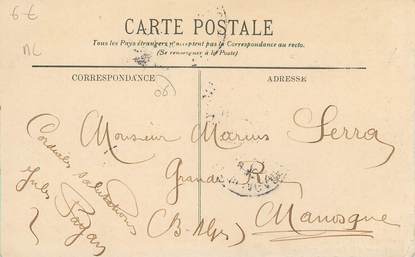 6€
NC
CARTE POSTALE
Tous les Pays étrangers n'acceptent pas la Correspondance au recto.
(Se renseigner à la Poste)
CORRESPONDANCE
ADRESSE
Cordiales salutations
Jules
Monsieur Marius Serra
Grande R
Manosque
(B-Alpes)